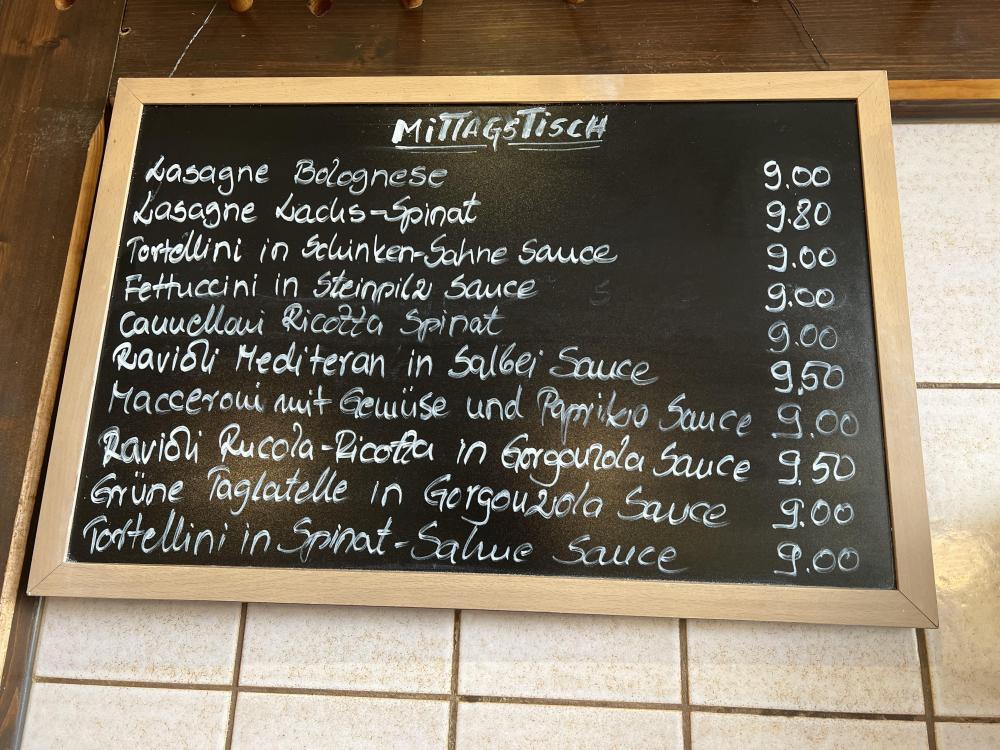 MITTAGSTISCH
Lasagne Bolognese 9.00
Lasagne Lachs-Spinat 9.80
Tortellini in Schinken-Sahne Sauce 9.00
Fettuccini in Steinpilz Sauce 9.00
Cannelloni Ricotta Spinat 9.00
Ravioli Mediteran in Salbei Sauce 9,50
Macceroni mit Gemüse und Paprika Sauce 9.00
Ravioli Rucola-Ricotta in Gorgonzola Sauce 9,50
Grüne Taglatelle in Gorgonziola Sauce 9.00
Tortellini in Spinat-Sahne Sauce 9.00